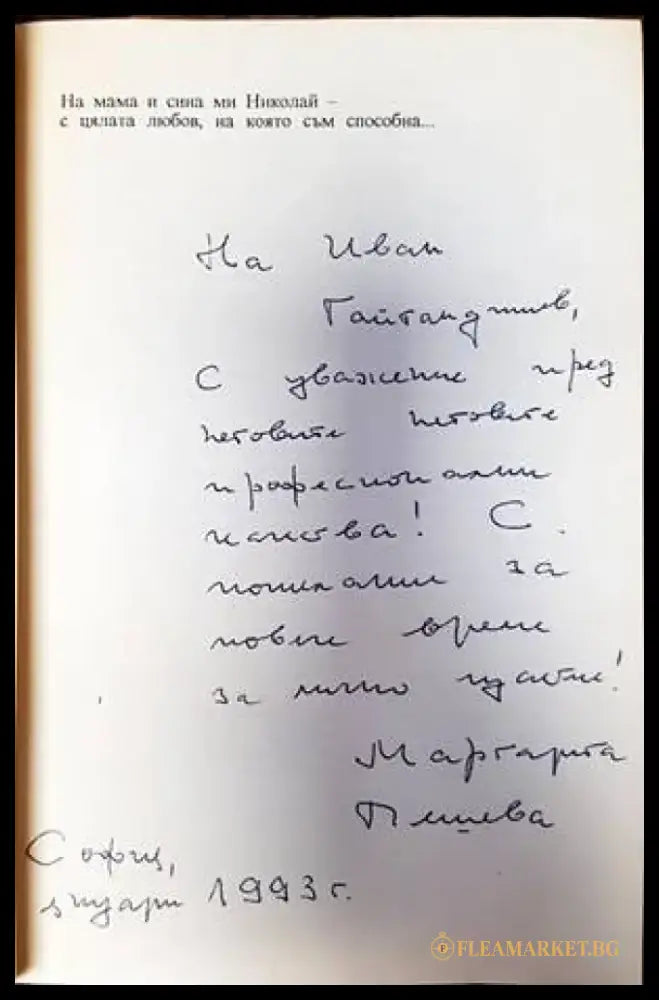 На мама и сина ми Николай –
с цялата любов, на която съм способна...
На Иван
Гайтанджиев,
С уважение пред
неговите неговите
професионални
качества! С
пожелания за
повече време
за лично щастие!
Маргарита
Пешева
София,
януари 1993 г.
FLEAMARKET.BG